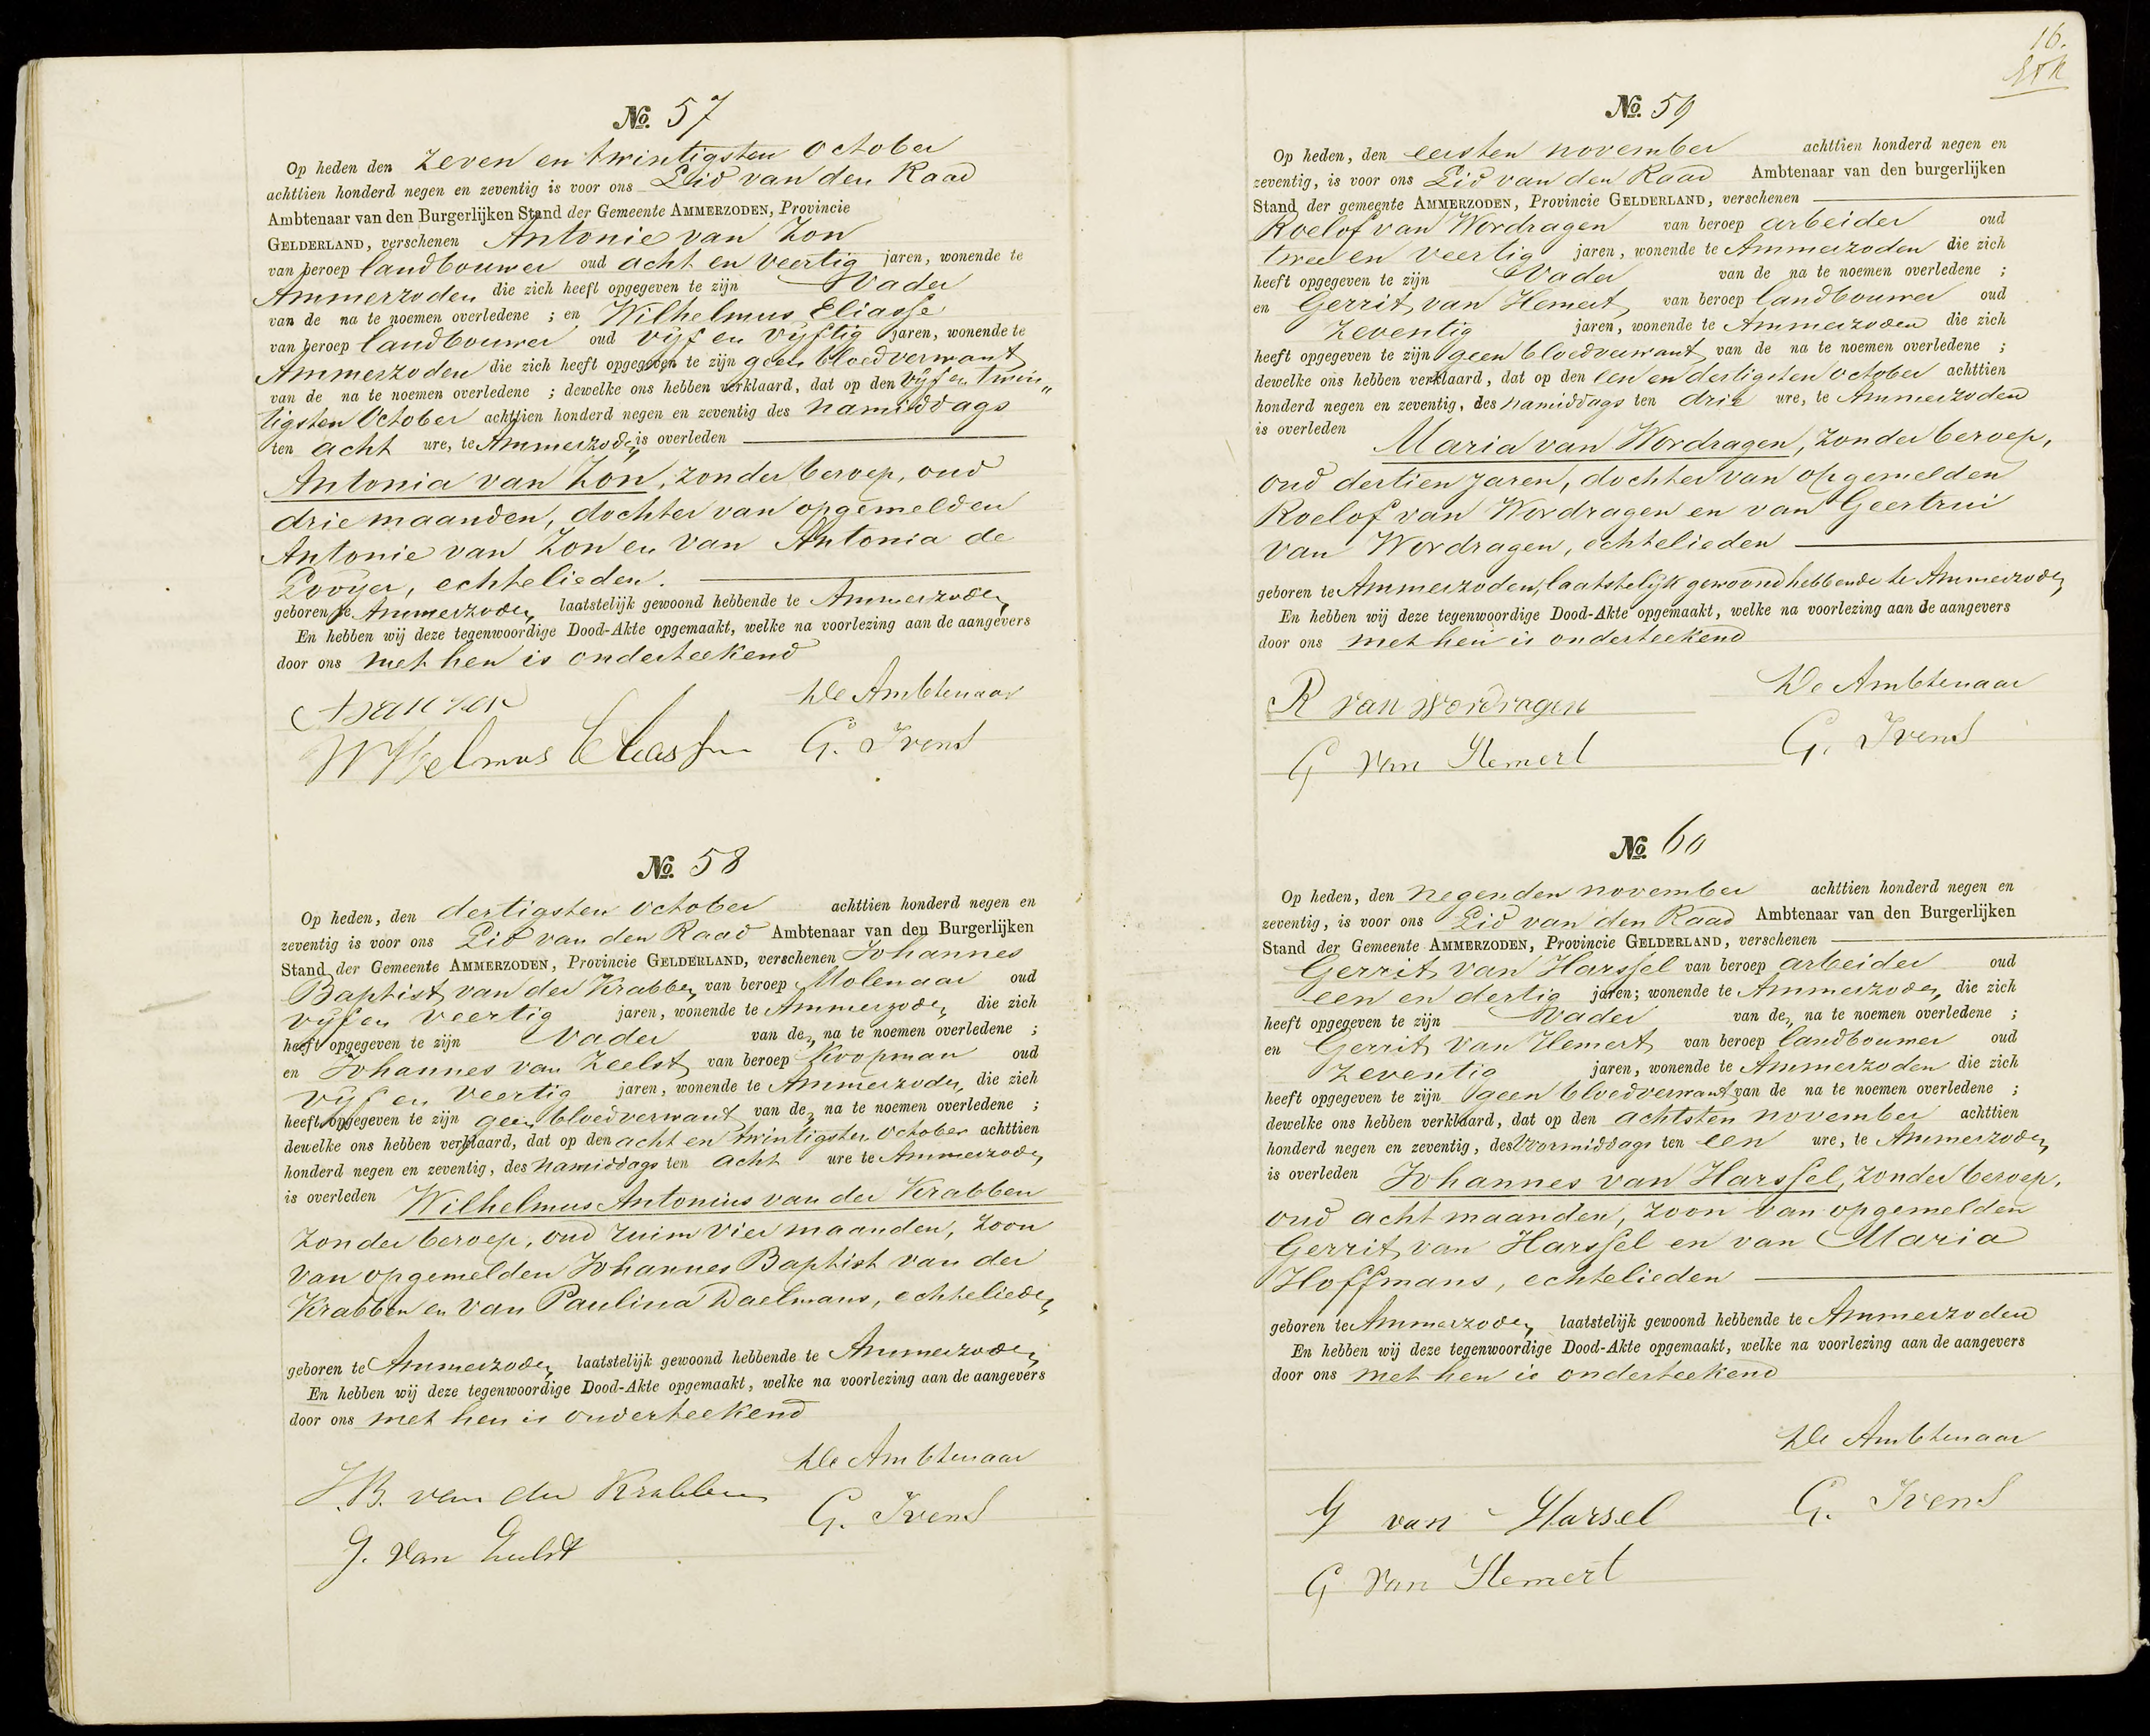 No. 57
Op heden den zeven en twintigsten October
achttien honderd negen en zeventig is voor ons Lid van den Raad
Ambtenaar van den Burgerlijken Stand der Gemeente AMMERZODEN, Provincie
GELDERLAND, verschenen Antonie van Zon
van beroep landbouwer oud acht en veertig jaren, wonende te
Ammerzoden die zich heeft opgegeven te zijn Vader
van de na te noemen overledene ; en Wilhelmus Eliasse
van beroep landbouwer oud vijf en vijftig jaren, wonende te
Ammerzoden die zich heeft opgegeven te zijn geen bloedverwant
van de na te noemen overledene ; dewelke ons hebben verklaard, dat op den vijf en twin„
tigsten October achttien honderd negen en zeventig des namiddags
ten acht ure, te Ammerzoden is overleden
Antonia van Zon, zonder beroep, oud
drie maanden, dochter van opgemelden
Antonie van Zon en van Antonia de
Pooijer, echtelieden.
geboren te Ammerzoden laatstelijk gewoond hebbende te Ammerzoden
En hebben wij deze tegenwoordige Dood-Akte opgemaakt, welke na voorlezing aan de aangevers
door ons met hen is onderteekend
De Ambtenaar
G. Ivens
No. 58
Op heden, den dertigsten October achttien honderd negen en
zeventig is voor ons Lid van den Raad Ambtenaar van den Burgerlijken
Stand der Gemeente AMMERZODEN, Provincie GELDERLAND, verschenen Johannes
Baptist van der Krabben van beroep Molenaar oud
vijf en veertig jaren, wonende te Ammerzoden die zich
heeft opgegeven te zijn Vader van den na te noemen overledene ;
en Johannes van Zeelst van beroep Koopman oud
vijf en veertig jaren, wonende te Ammerzoden die zich
heeft opgegeven te zijn geen bloedverwant van den na te noemen overledene ;
dewelke ons hebben verklaard, dat op den acht en twintigsten October achttien
honderd negen en zeventig, des namiddags ten acht ure te Ammerzoden
is overleden Wilhelmus Antonius van der Krabben
zonder beroep, oud ruim vier maanden, zoon
van opgemelden Johannes Baptist van der
Krabben en van Paulina Daelmans, echtelieden
geboren te Ammerzoden laatstelijk gewoond hebbende te Ammerzoden
En hebben wij deze tegenwoordige Dood-Akte opgemaakt, welke na voorlezing aan de aangevers
door ons met hen is onderteekend
De Ambtenaar
J.B. van der Krabben
G. Ivens
J. van
16.
No. 59
Op heden, den eersten november achttien honderd negen en
zeventig, is voor ons Lid van den Raad Ambtenaar van den burgerlijken
Stand der gemeente AMMERZODEN, Provincie GELDERLAND, verschenen
Roelof van Wordragen van beroep arbeider oud
twee en veertig jaren, wonende te Ammerzoden die zich
heeft opgegeven te zijn Vader van de na te noemen overledene ;
en Gerrit van Hemert van beroep landbouwer oud
zeventig jaren, wonende te Ammerzoden die zich
heeft opgegeven te zijn geen bloedverwant van de na te noemen overledene ;
dewelke ons hebben verklaard, dat op den een en dertigsten October achttien
honderd negen en zeventig, des namiddags ten drie ure, te Ammerzoden
is overleden
Maria van Wordragen, zonder beroep,
oud dertien jaren, dochter van opgemelden
Roelof van Wordragen en van Geertrui
van Wordragen, echtelieden
geboren te Ammerzoden, laatstelijk gewoond hebbende te Ammerzoden
En hebben wij deze tegenwoordige Dood-Akte opgemaakt, welke na voorlezing aan de aangevers
door ons met hen is onderteekend
De Ambtenaar
R van Wordragen
G. Ivens
G van Hemert
No. 60
Op heden, den negenden november achttien honderd negen en
zeventig, is voor ons Lid van den Raad Ambtenaar van den Burgerlijken
Stand der Gemeente AMMERZODEN, Provincie GELDERLAND, verschenen
Gerrit van Harssel van beroep arbeider oud
een en dertig jaren; wonende te Ammerzoden die zich
heeft opgegeven te zijn Vader van den na te noemen overledene ;
en Gerrit van Hemert van beroep landbouwer oud
zeventig jaren, wonende te Ammerzoden die zich
heeft opgegeven te zijn geen bloedverwant van de na te noemen overledene ;
dewelke ons hebben verklaard, dat op den achtsten november achttien
honderd negen en zeventig, des voormiddags ten een ure, te Ammerzoden
is overleden Johannes van Harssel, zonder beroep,
oud acht maanden, zoon van opgemelden
Gerrit van Harssel en van Maria
Hoffmans, echtelieden
geboren te Ammerzoden laatstelijk gewoond hebbende te Ammerzoden
En hebben wij deze tegenwoordige Dood-Akte opgemaakt, welke na voorlezing aan de aangevers
door ons met hen is onderteekend
De Ambtenaar
G van Harsel
G. Ivens
G van Hemert